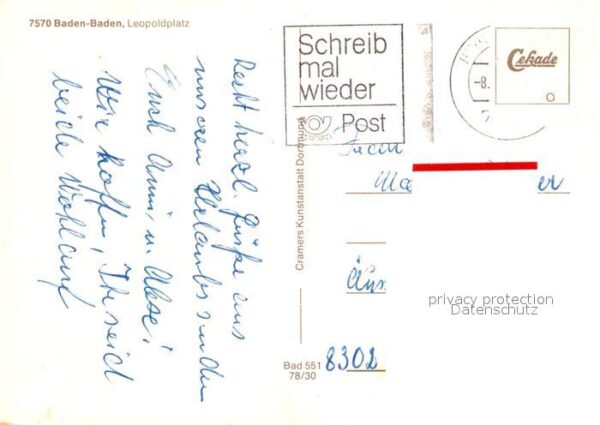 7570 Baden-Baden, Leopoldplatz
Recht herzl. Grüße aus
unseren Urlaub senden
Euch Anni u.
Wir hoffen, Ihr seid
beide Wohlauf
Schreib
mal
wieder
Post
Cekade
-8.
Cramers Kunstanstalt Dortmund
Bad 551
78/30
8302
privacy protection
Datenschutz